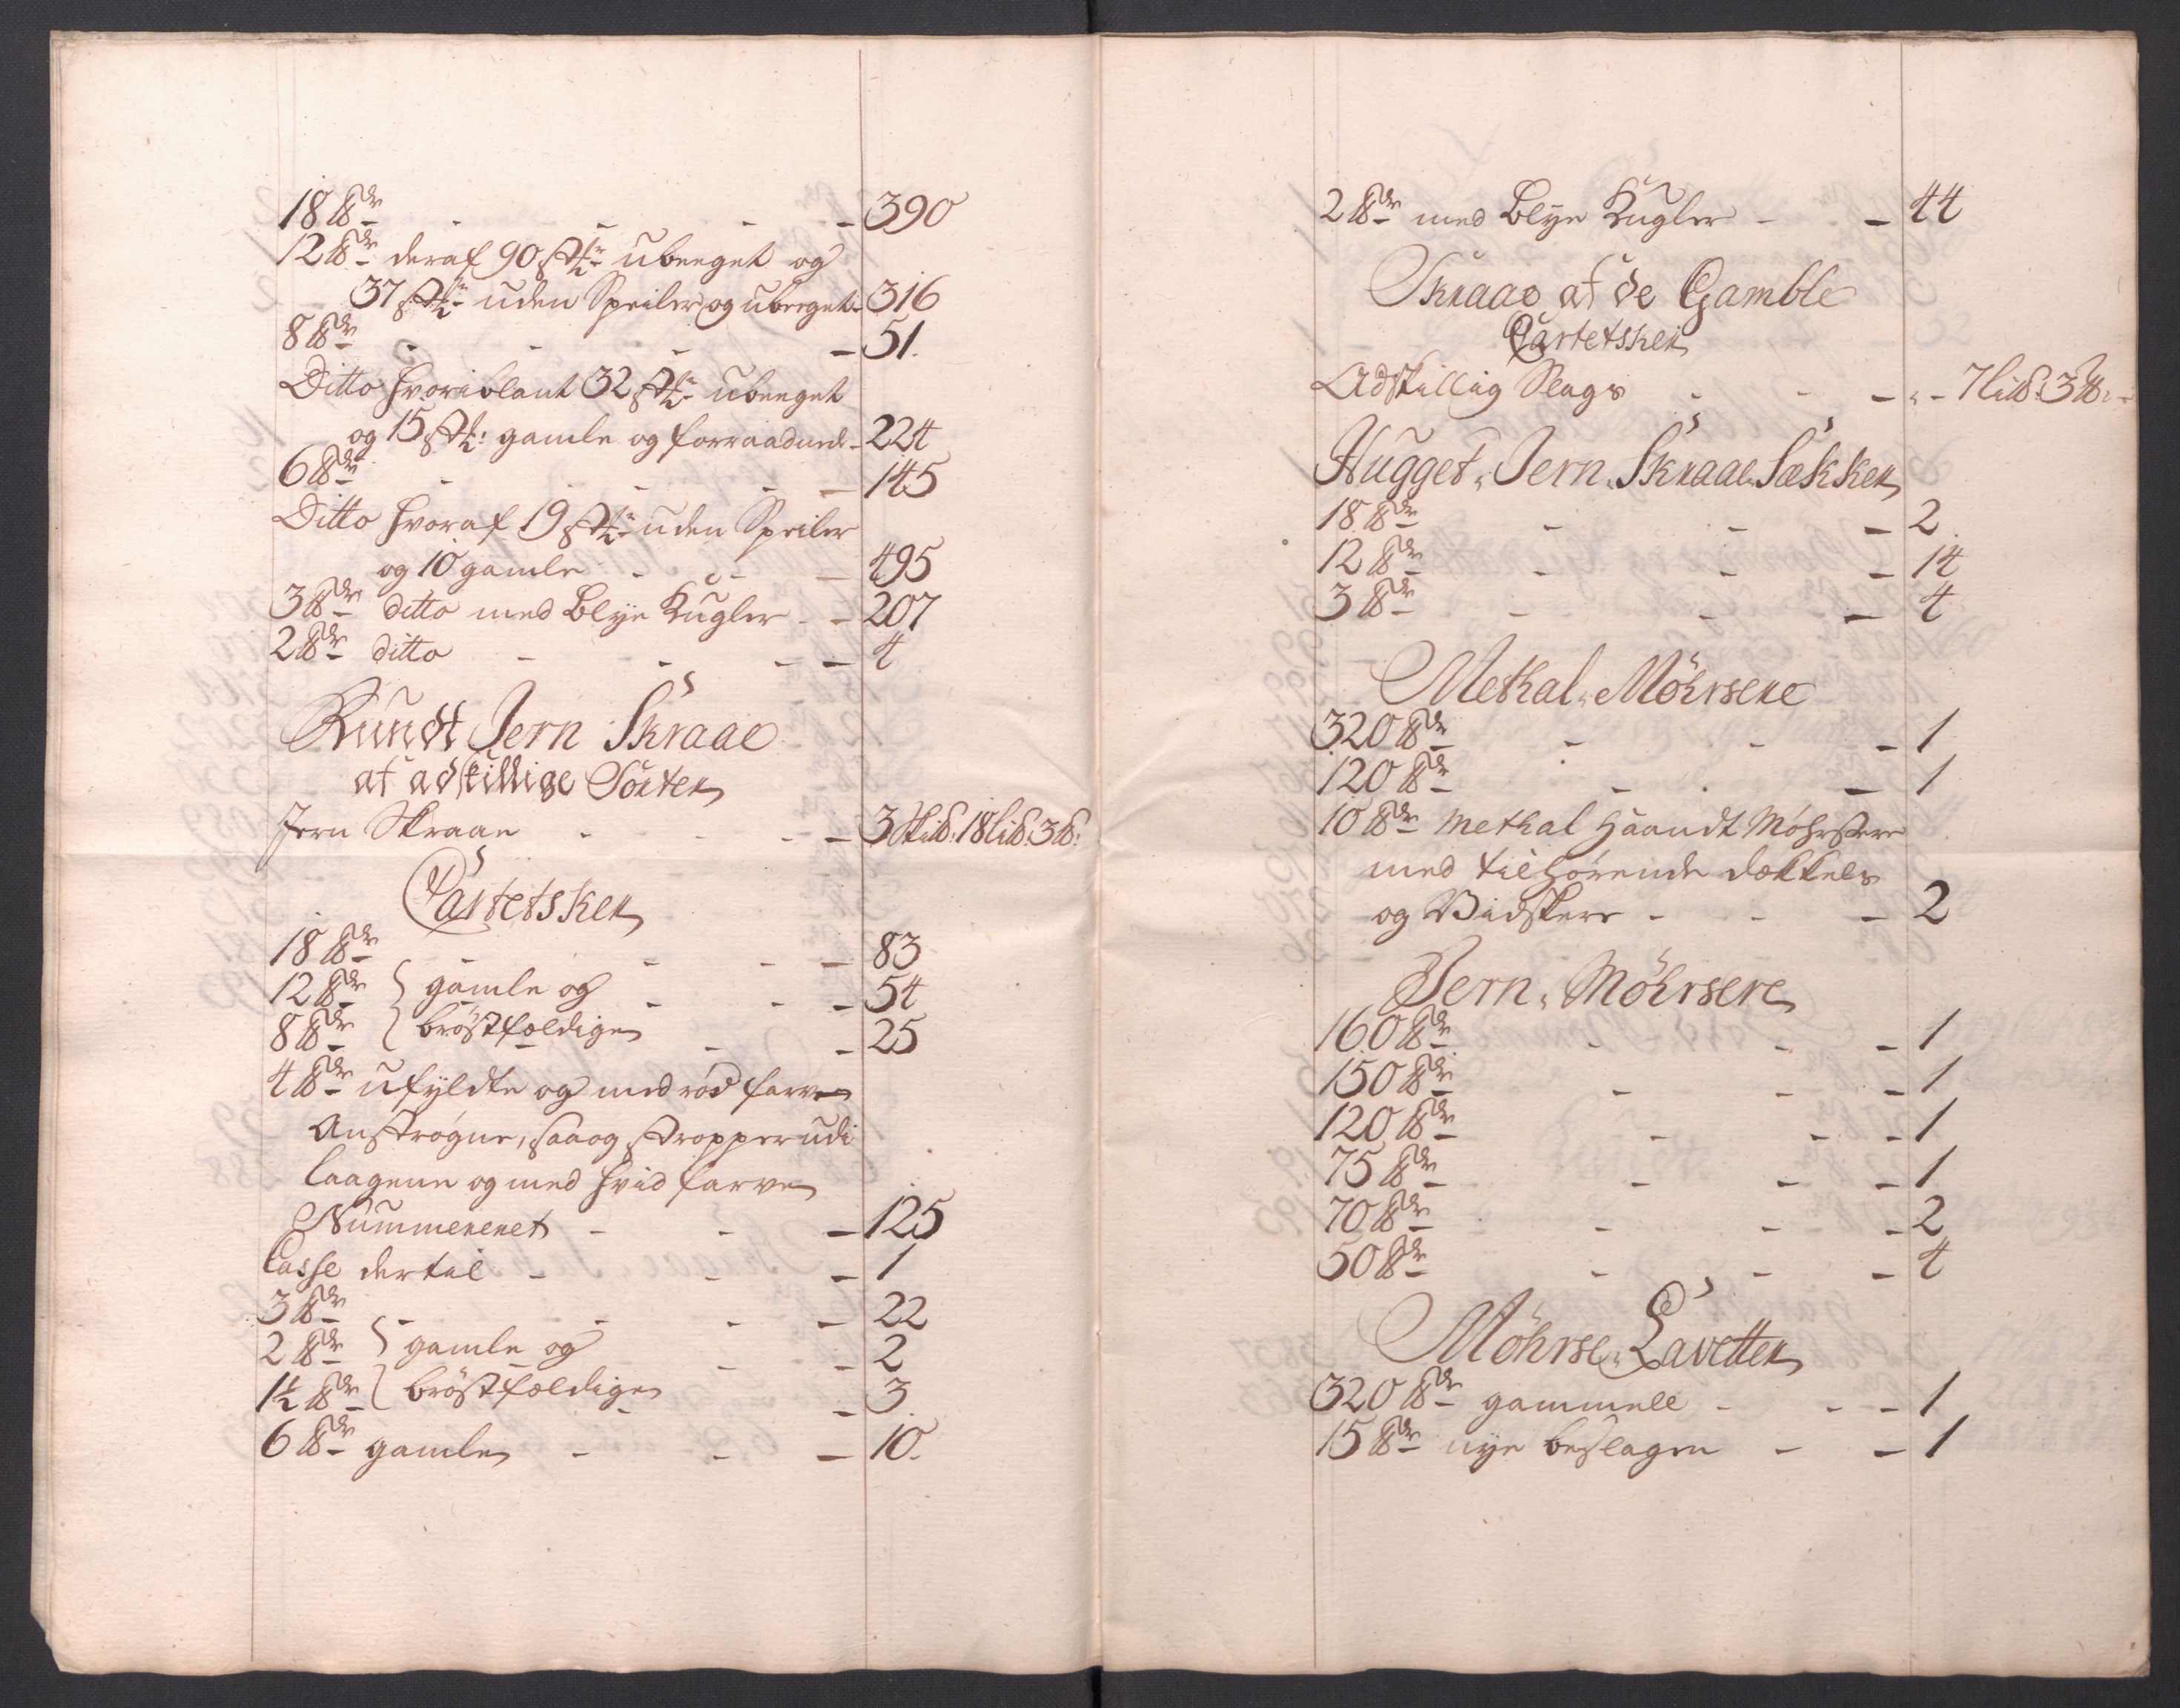 18 ℔dr - - - - 390
12 ℔dr deraf 90 støkr ubeeget og
37 støkr uden Speiler og ubeeget 316
8 ℔dr - - - - 51.
Ditto hvoriblant 32 støkr ubeeget
og 15 støk: gamle og forraadnede - 224
6 ℔dr - - - - 145
Ditto hvoraf 19 støkr uden Speiler
og 10 gamle - - - 495
3 ℔dr ditto med Blye Kugler - - 207
2 ℔dr ditto - - - - 4
Rundt Jern Skraae
af adskillige Sorter
Jern Skraae - - - - 3 Ski℔: 18 Li℔: 3 ℔:
Cartetsker
18 ℔dr - - - - 83
12 ℔dr } gamle og - - - 54
8 ℔dr } bröstfældige - - 25
4 ℔dr ufyldte og med rød farve
Anstrøgne, saa og Propper udi
laagene og med hvid farve
Nummereret - - - 125
Casse dertil - - - 1
3 ℔dr - - - - 22
2 ℔dr } gamle og - - 2
1½ ℔dr } bröstfældige - - 3
6 ℔dr gamle - - - 10.
2 ℔dr med Blye Kugler - - 44
Skraae af de Gamble
Cartetsker
Adskillig Slags - - - - 7 Li℔: 3 ℔:
Hugget Jern Skraae Sækker
18 ℔dr - - - 2
12 ℔dr - - - 14
3 ℔dr - - - 4
Methal Möhrsere
320 ℔dr - - - 1
120 ℔dr - - - 1
10 ℔dr Methal Haandt Möhrsere
med tilhørende dækkels
og Vidskere - - - 2
Jern Möhrsere
160 ℔dr - - - 1
150 ℔dr - - - 1
120 ℔dr - - - 1
75 ℔dr - - - 1
70 ℔dr - - - 2
50 ℔dr - - - 4
Möhrse Lavetter
320 ℔dr gammell - - - 1
15 ℔dr nye beslagen - - 1